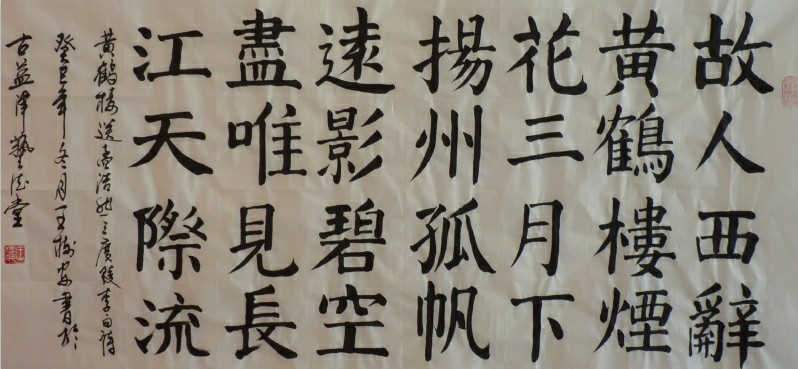 故人西辭
黃鶴樓煙
花三月下
揚州孤帆
遠影碧空
盡唯見長
江天際流
黃鶴樓送孟浩然之廣陵李白詩
癸巳年冬月王樹安書於
古益津藝德堂